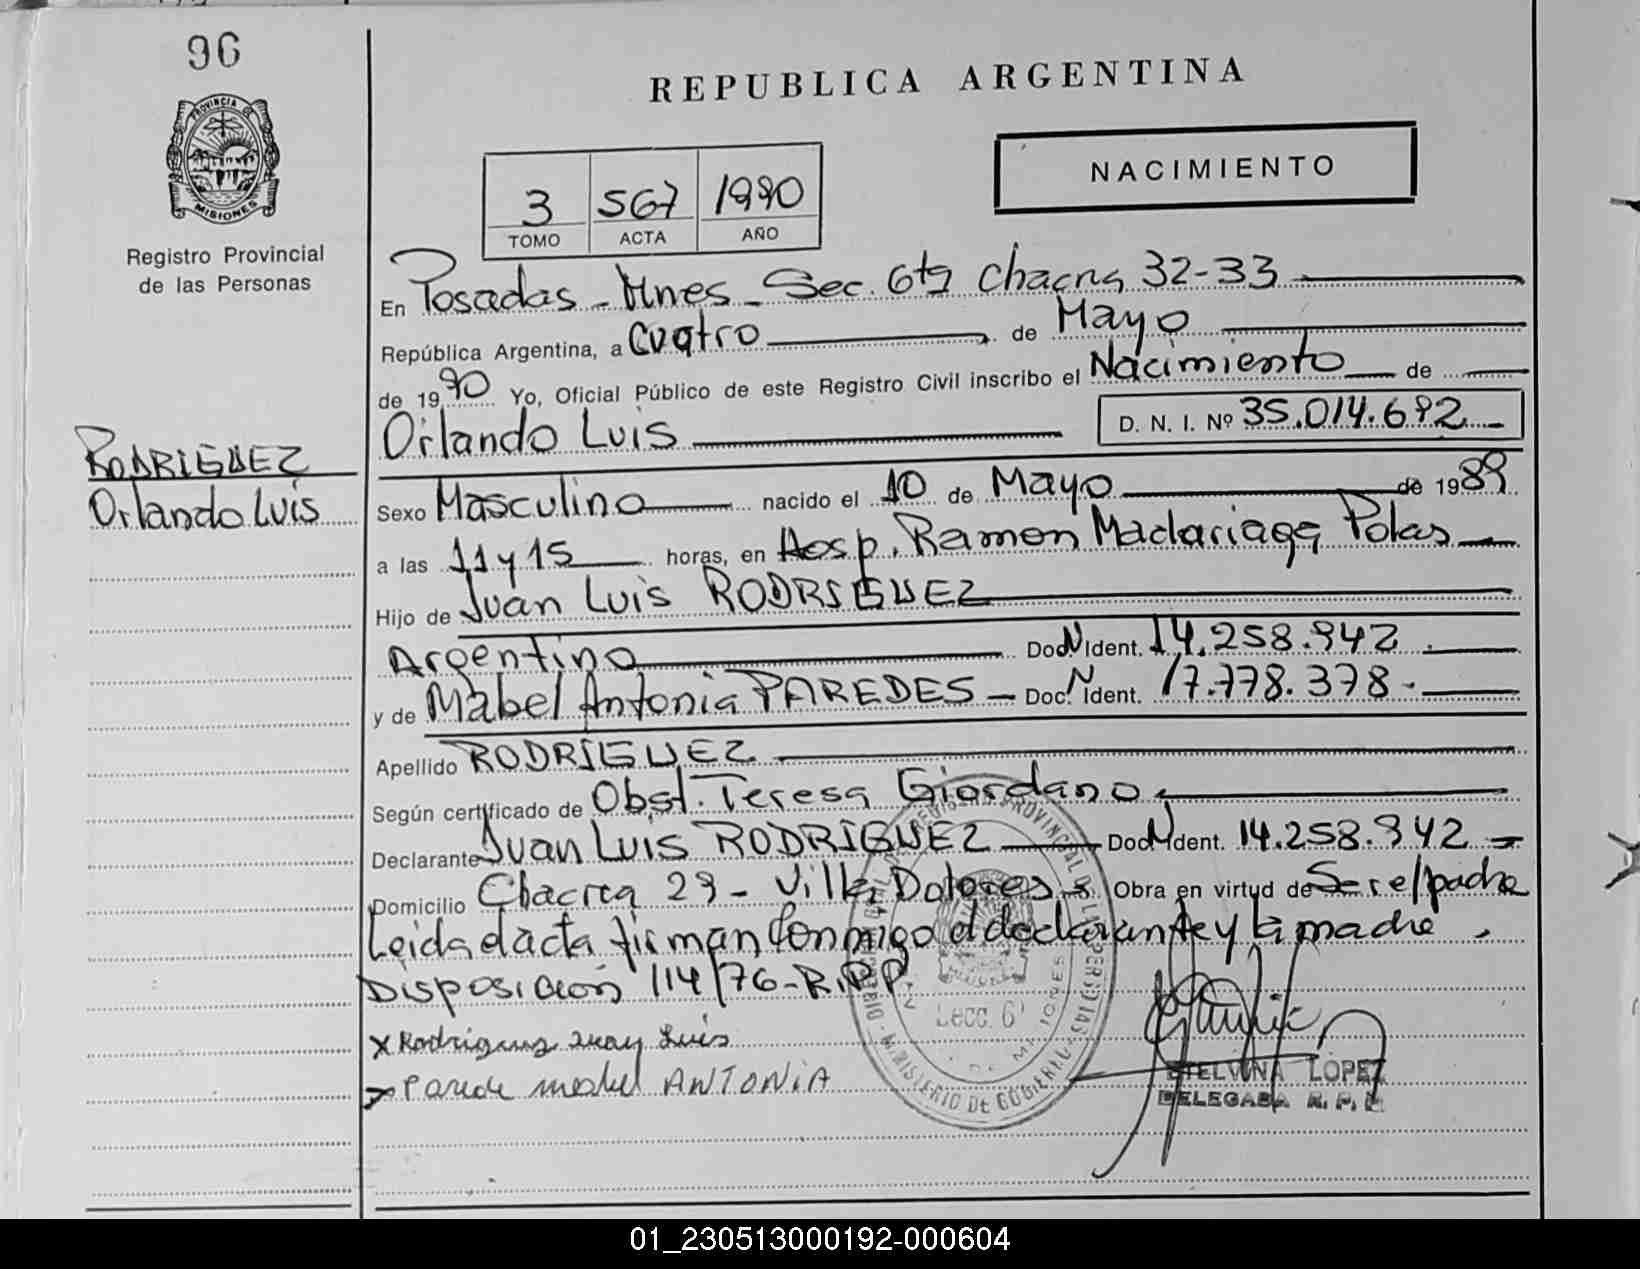 96
REPUBLICA ARGENTINA
NACIMIENTO
3 567 1990
TOMO ACTA AÑO
PROVINCIA DE
MISIONES
Registro Provincial
de las Personas
En Posadas - Mnes - Sec. 6ta Chacra 32-33
República Argentina, a Cuatro de Mayo
de 1990 Yo, Oficial Público de este Registro Civil inscribo el Nacimiento de
Orlando Luis D. N. I. Nº 35.014.692
RODRIGUEZ
Orlando Luis
Sexo Masculino nacido el 10 de Mayo de 1989
a las 11 y 15 horas, en Hosp. Ramon Madariaga Pdas
Hijo de Juan Luis RODRIGUEZ
Argentino Doc N Ident. 14.258.942
y de Mabel Antonia PAREDES Doc. N Ident. 17.778.378
Apellido RODRIGUEZ
Según certificado de Obst. Teresa Giordano
Declarante Juan Luis RODRIGUEZ Doc N Ident. 14.258.942
Domicilio Chacra 29 - Villa Dolores Obra en virtud de Ser el padre
Leida el acta firman Conmigo el declarante y la madre
Disposicion 114/76-R.P.P.
x Rodriguez Juan Luis
Parede mabel ANTONIA
Secc. 6
MISIONES
MINISTERIO DE GOBIERNO
ETELVINA LOPEZ
DELEGADA R. P. P.
01_230513000192-000604